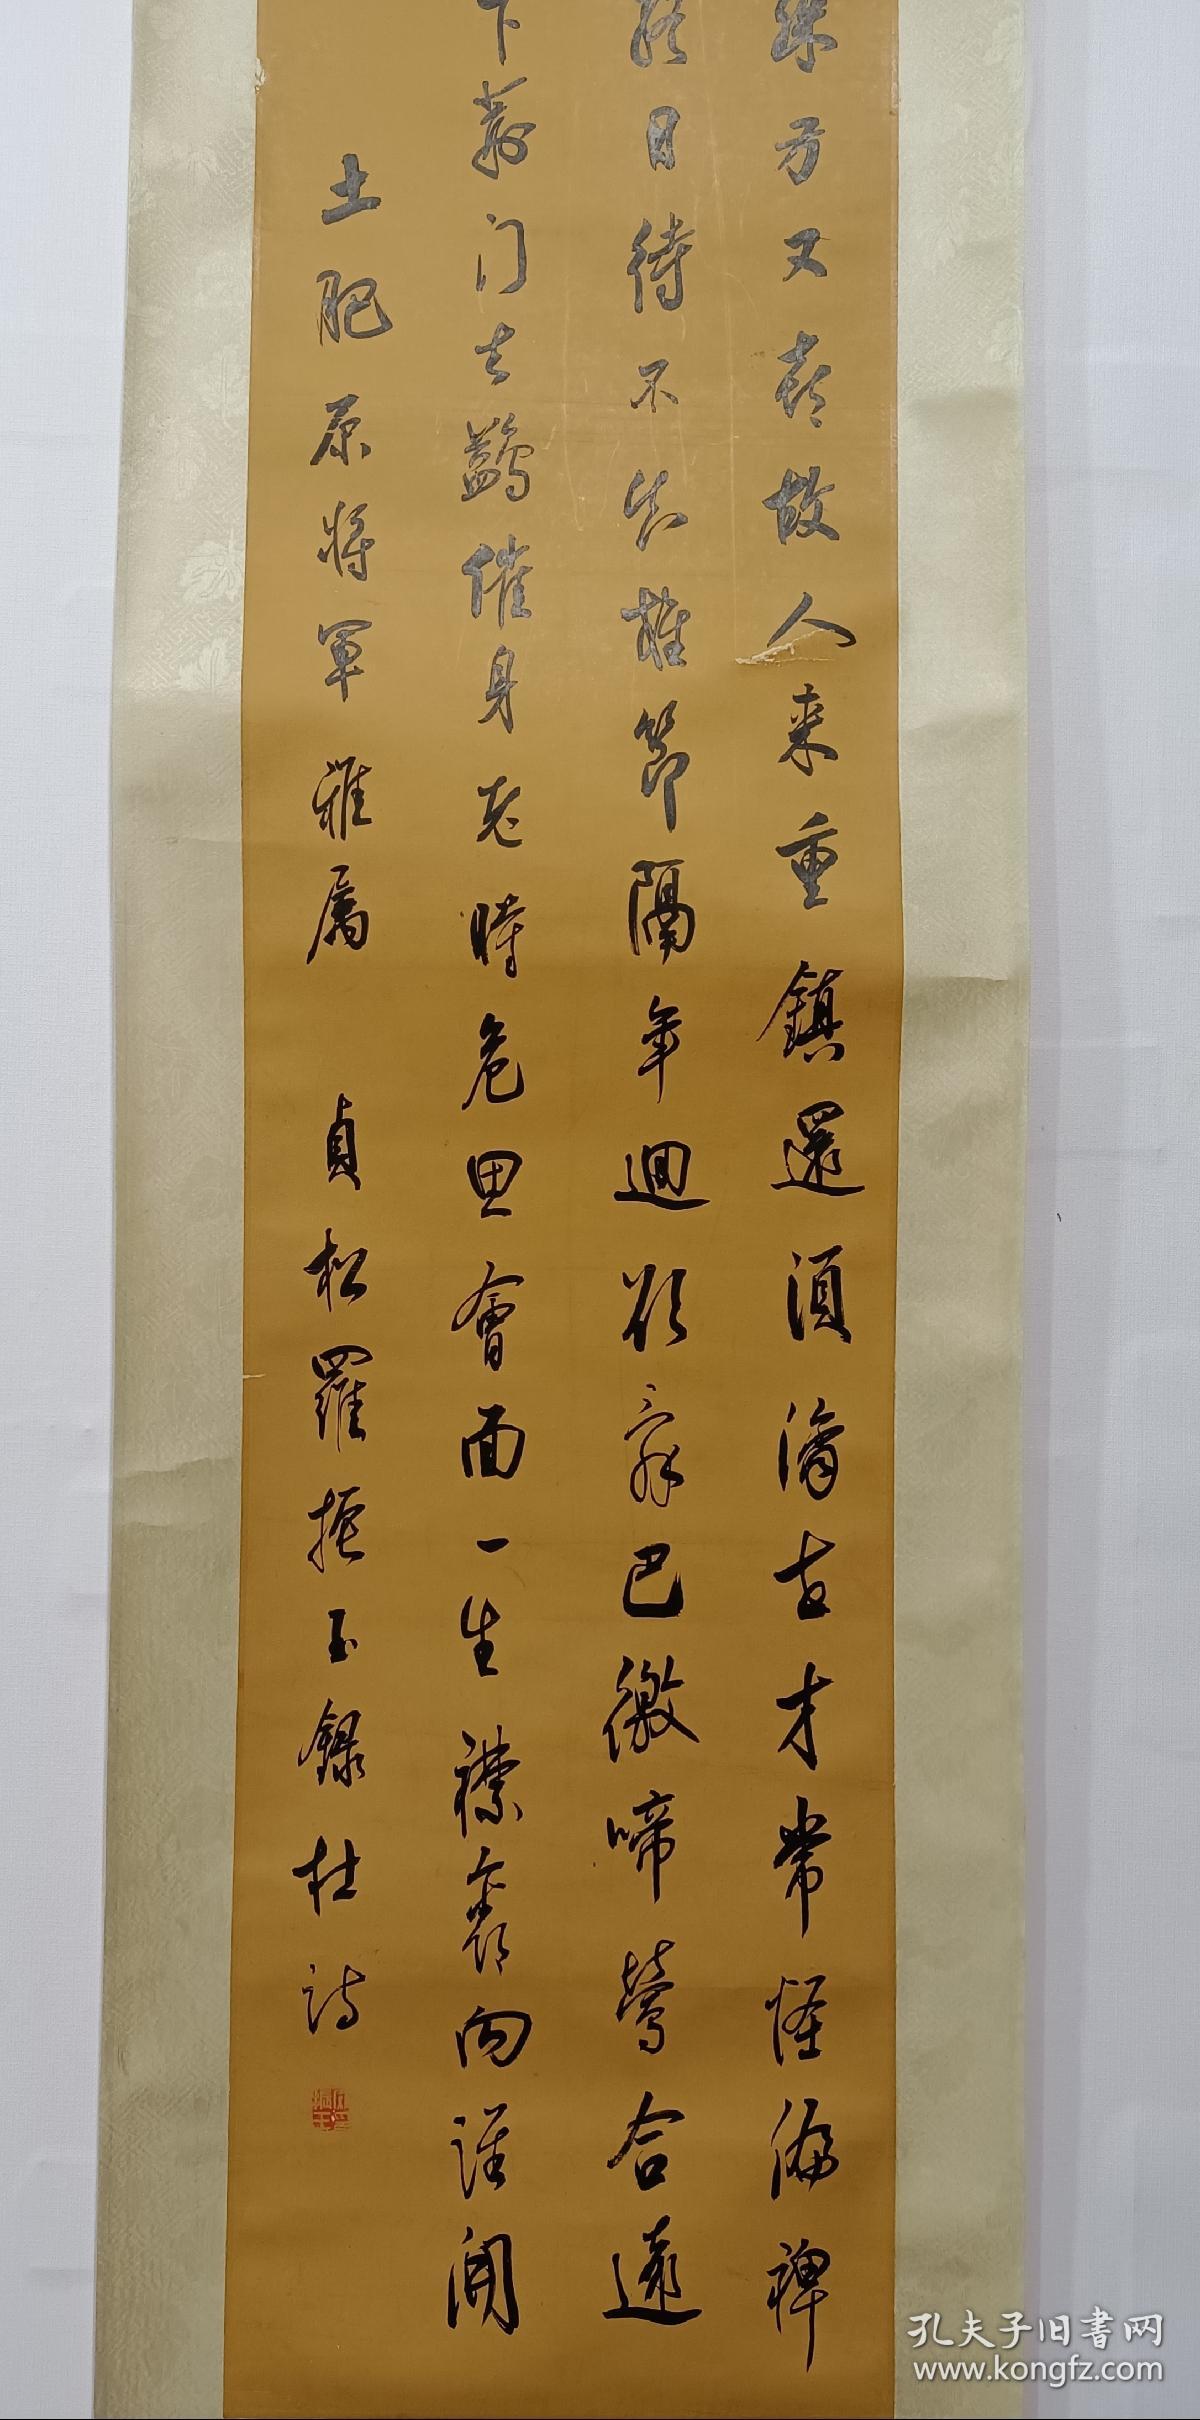 殊方又喜故人来重鎮還須濟世才常怪偏裨
終日待不知旌節隔年迴欲辭巴徼啼鶯合遠
下荆門去鷁催身老時危思會面一生襟袌向誰開
土肥原將軍雅属 貞松羅振玉錄杜詩
孔夫子旧書网
www.kongfz.com